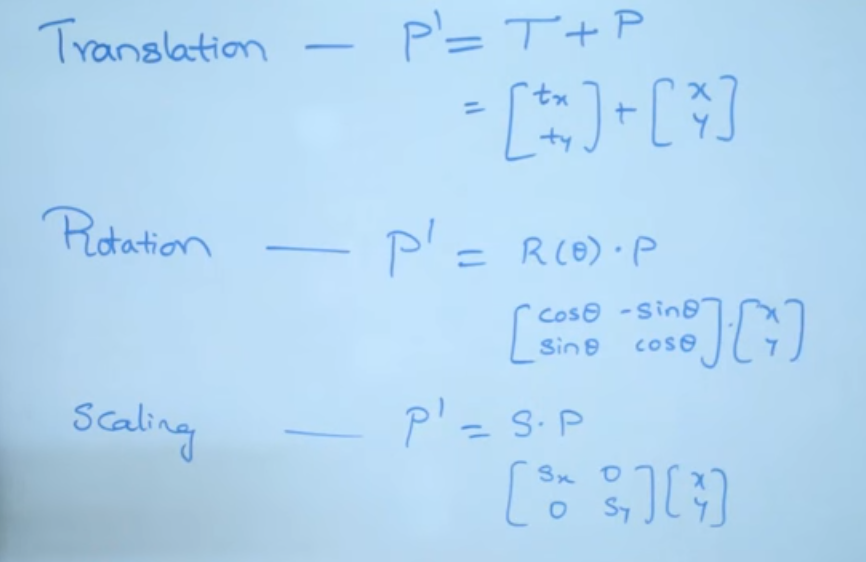 Translation — P' = T + P
= [tx ty] + [x y]
Rotation — P' = R(θ) · P
[cosθ -sinθ sinθ cosθ] · [x y]
Scaling — P' = S · P
[Sx 0 0 Sy] [x y]